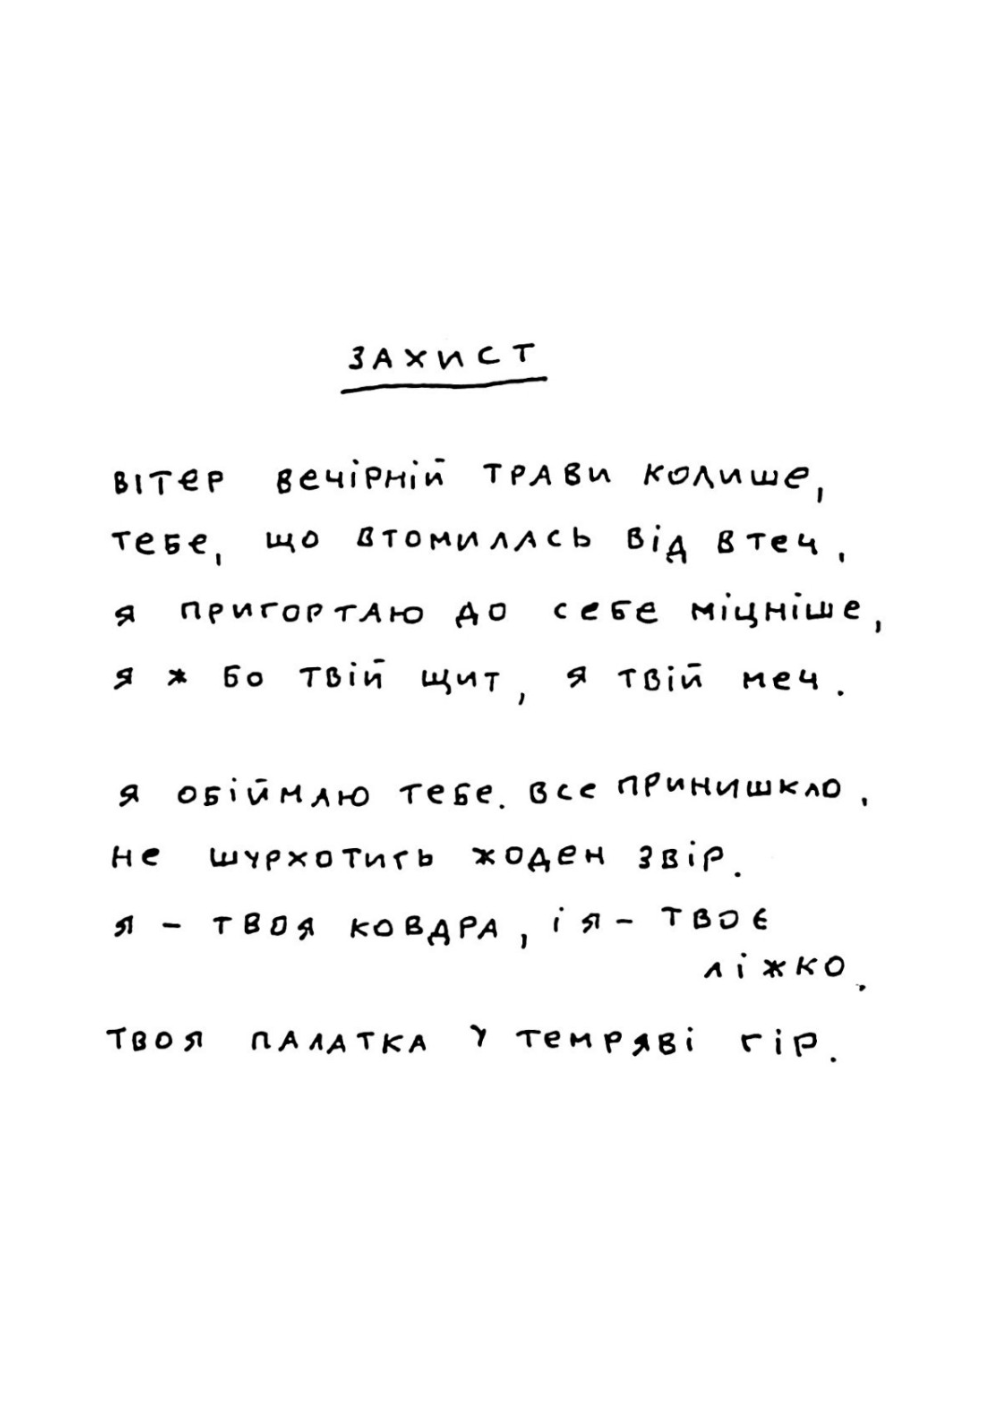 ЗАХИСТ
ВІТЕР ВЕЧІРНІЙ ТРАВИ КОЛИШЕ,
ТЕБЕ, ЩО ВТОМИЛАСЬ ВІД ВТЕЧ,
Я ПРИГОРТАЮ ДО СЕБЕ МІЦНІШЕ,
Я Ж БО ТВІЙ ЩИТ, Я ТВІЙ МЕЧ.
Я ОБІЙМАЮ ТЕБЕ. ВСЕ ПРИНИШКЛО,
НЕ ШУРХОТИТЬ ЖОДЕН ЗВІР.
Я - ТВОЯ КОВДРА, І Я - ТВОЄ
ЛІЖКО.
ТВОЯ ПАЛАТКА У ТЕМРЯВІ ГІР.